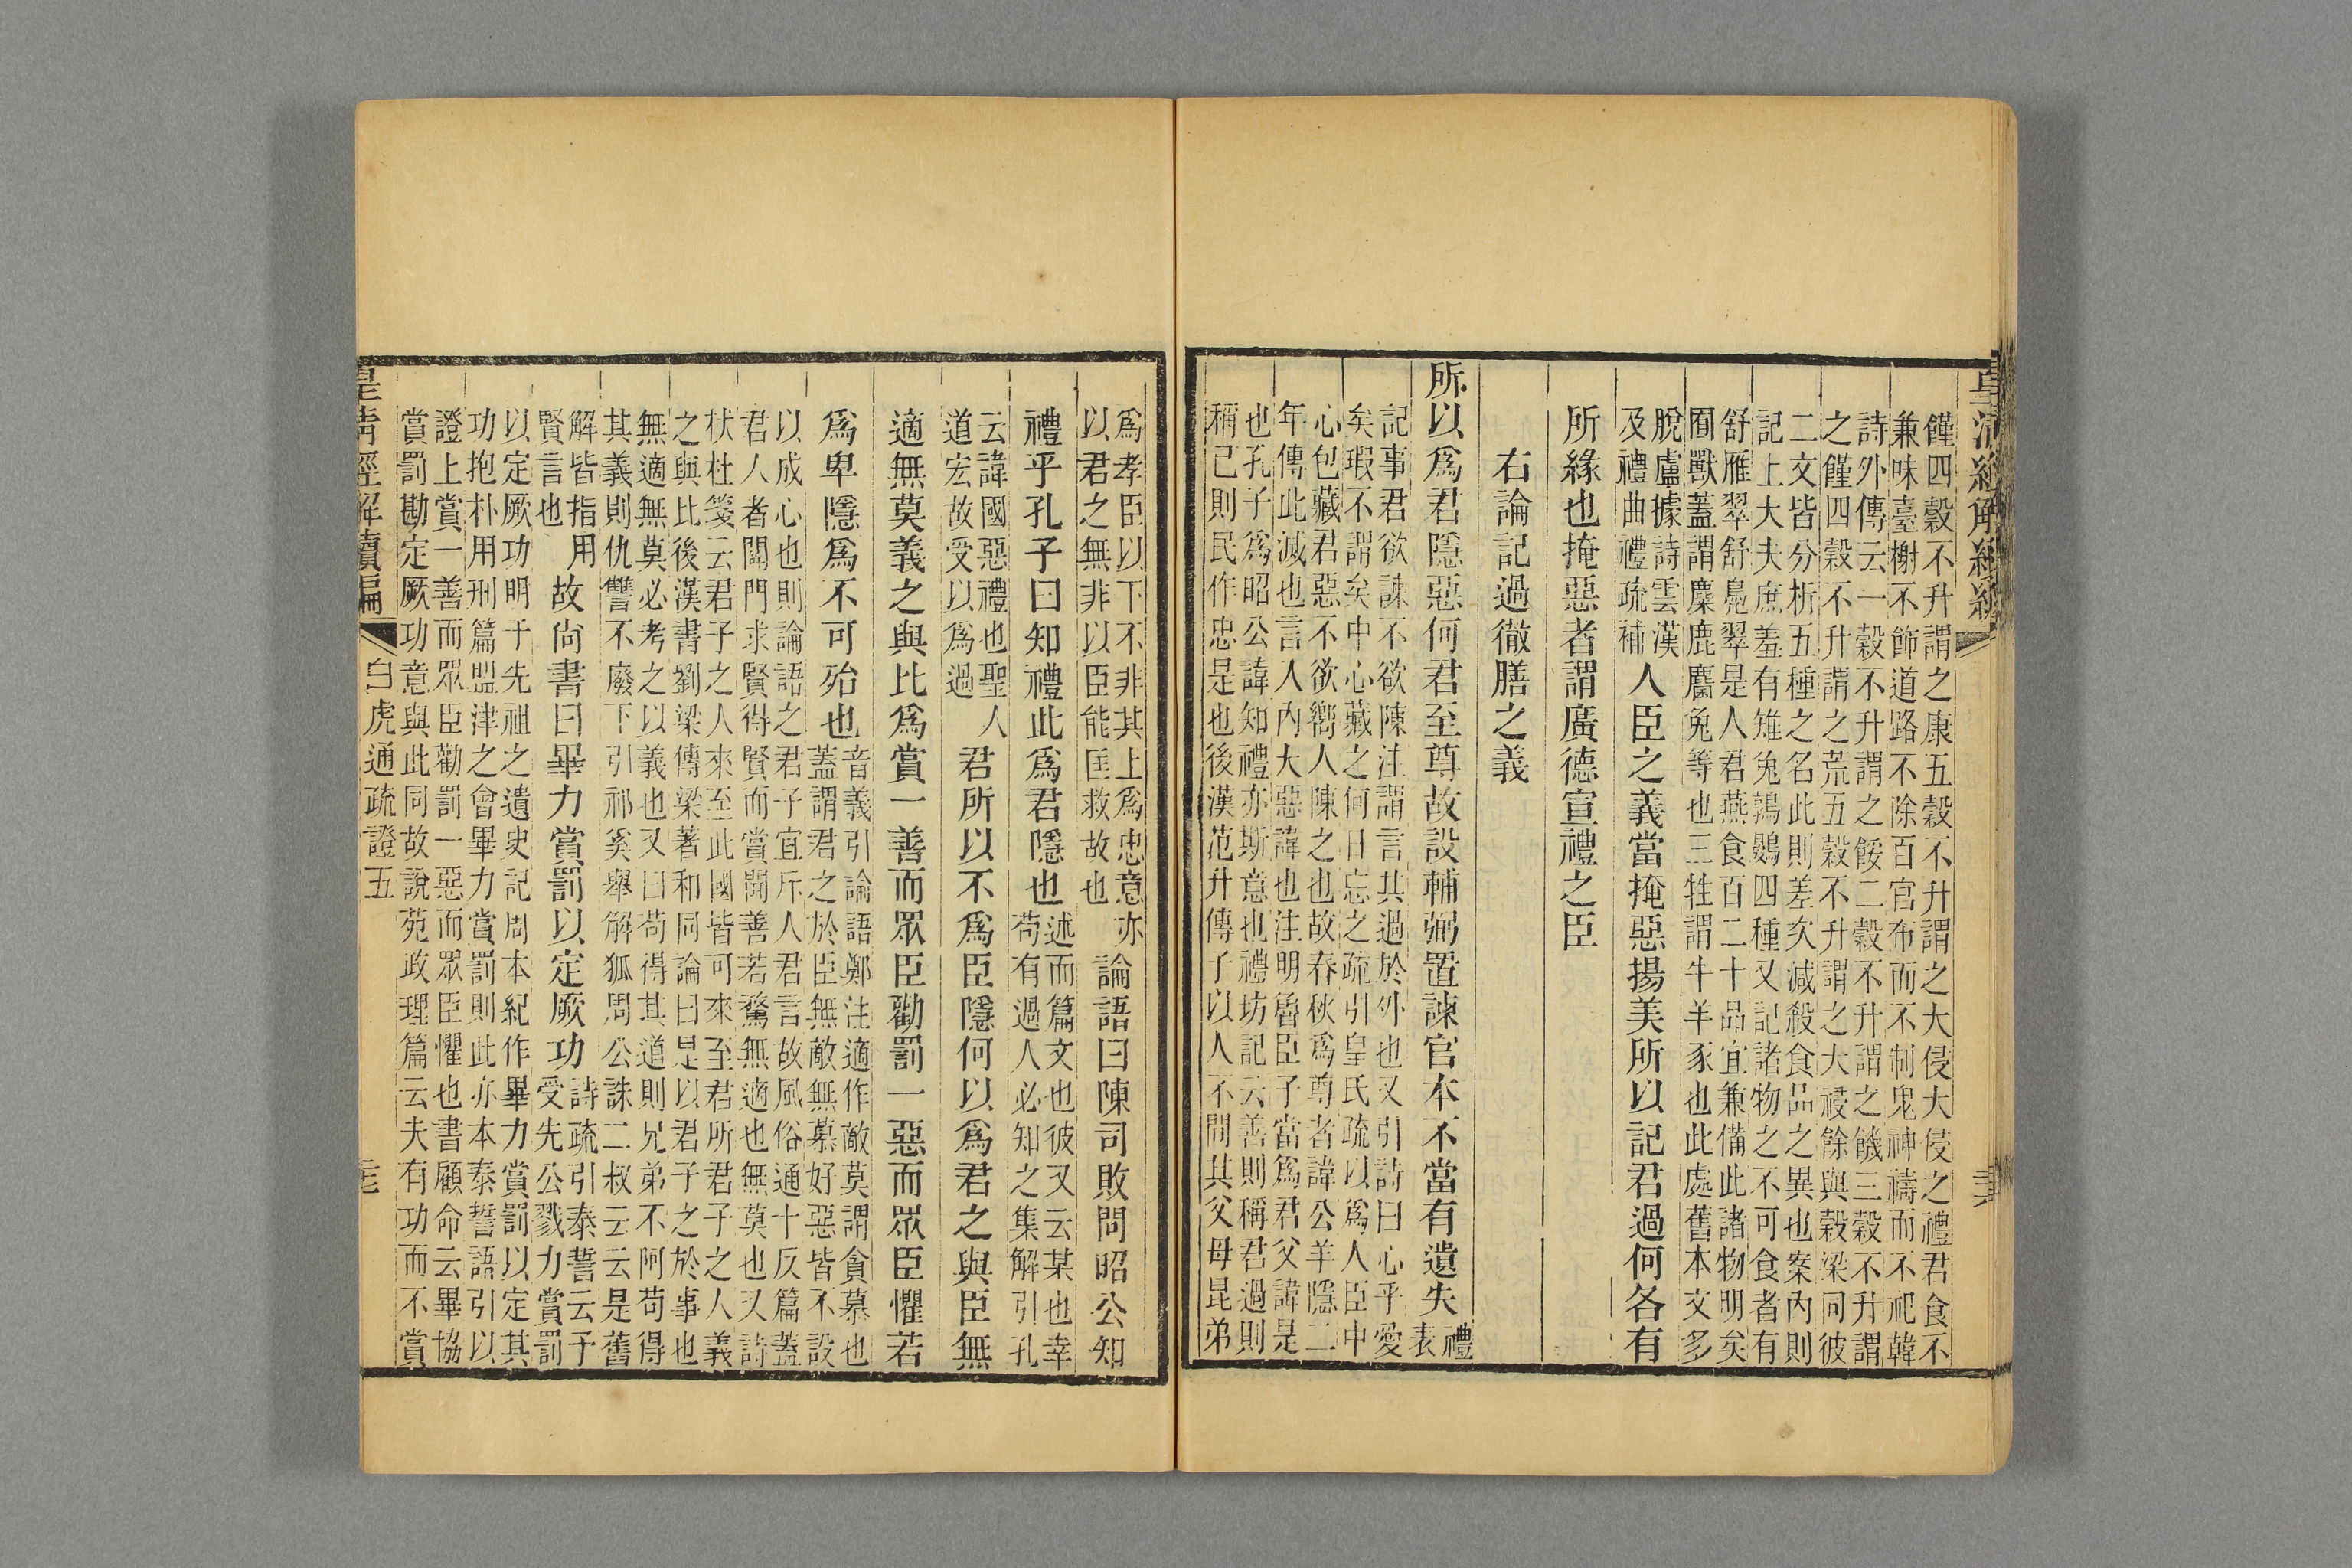 皇清經解續編
饉四穀不升謂之康五穀不升謂之大侵大侵之禮君食不
兼味臺榭不飾道路不除百官布而不制鬼神禱而不祀韓
詩外傳云一穀不升謂之餒二穀不升謂之饑三穀不升謂
之饉四穀不升謂之荒五穀不升謂之大祲餘與穀梁同彼
二文皆分析五種之名此則差次減殺食品之異也案內則
記上大夫庶羞有雉兔鶉鷃四種又記諸物之不可食者有
舒雁翠舒鳧翠是人君燕食百二十品宜兼備此諸物明矣
囿獸蓋謂麋鹿麕兔等也三牲謂牛羊豕也此處舊本文多
脫盧據詩雲漢
及禮曲禮疏補
人臣之義當掩惡揚美所以記君過何各有
所緣也掩惡者謂廣德宣禮之臣
右論記過徹膳之義
所以爲君隱惡何君至尊故設輔弼置諫官本不當有遺失
禮
表
記事君欲諫不欲陳注謂言其過於外也又引詩曰心乎愛
矣瑕不謂矣中心藏之何日忘之疏引皇氏疏以爲人臣中
心包藏君惡不欲嚮人陳之也故春秋爲尊者諱公羊隱二
年傳此滅也言人內大惡諱也注明魯臣子當爲君父諱是
也孔子爲昭公諱知禮亦斯意也禮坊記云善則稱君過則
稱己則民作忠是也後漢范升傳子以人不間其父母昆弟
爲孝臣以下不非其上爲忠意亦
以君之無非以臣能匡救故也
論語曰陳司敗問昭公知
禮乎孔子曰知禮此爲君隱也
述而篇文也彼又云某也幸
苟有過人必知之集解引孔
云諱國惡禮也聖人
道宏故受以爲過
君所以不爲臣隱何以爲君之與臣無
適無莫義之與比爲賞一善而眾臣勸罰一惡而眾臣懼若
爲卑隱爲不可殆也
音義引論語鄭注適作敵莫謂貪慕也
蓋謂君之於臣無敵無慕好惡皆不設
以成心也則論語之君子宜斥人君言故風俗通十反篇蓋
君人者闢門求賢得賢而賞聞善若驚無適也無莫也又詩
杕杜箋云君子之人來至此國皆可來至君所君子之人義
之與比後漢書劉梁傳梁著和同論曰是以君子之於事也
無適無莫必考之以義也又曰苟得其道則兄弟不阿苟得
其義則仇讐不廢下引祁奚舉解狐周公誅二叔云云是舊
解皆指用
賢言也
故尙書曰畢力賞罰以定厥功
詩疏引泰誓云予
受先公戮力賞罰
以定厥功明于先祖之遺史記周本紀作畢力賞罰以定其
功抱朴用刑篇盟津之會畢力賞罰則此亦本泰誓語引以
證上賞一善而眾臣勸罰一惡而眾臣懼也書顧命云畢協
賞罰勘定厥功意與此同故說苑政理篇云夫有功而不賞
皇清經解續編
白虎通疏證五